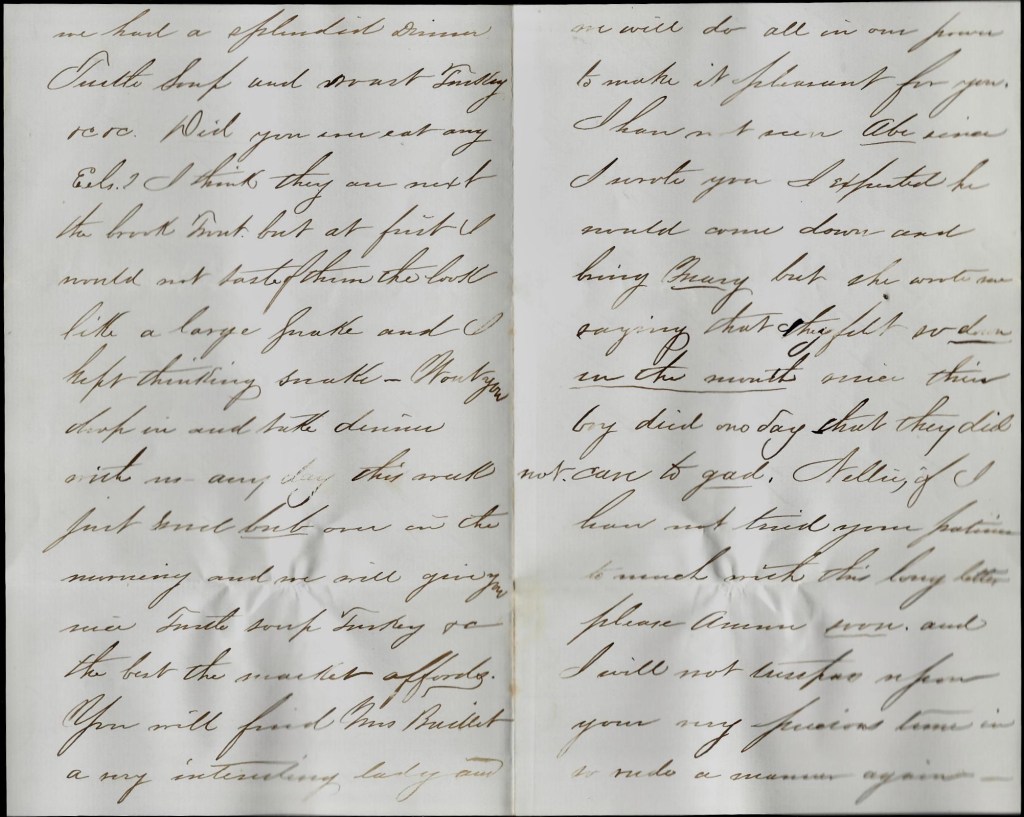 we had a splendid Dinner
Turtle Soup and roast Turkey
&c &c. Did you ever eat any
Eels.? I think they are next
the brook Trout. but at first I
would not taste of them the look
like a large snake and I
kept thinking snake – Wont you
drop in and take dinner
with us any day this week
just send but over in the
morning and we will give you
nice Turtle soup Turkey &c
the best the market affords.
You will find Mrs
a very interesting lady and
we will do all in our power
to make it pleasant for you.
I have not seen Abe since
I wrote you I expected he
would come down and
bring Mary but she wrote me
saying that they felt so down
in the mouth since their
boy died one day that they did
not. care to gad. Nellie, if I
have not tried your patience
to much with this long letter
please soon. and
I will not trespass upon
your very precious time in
so rude a manner again —